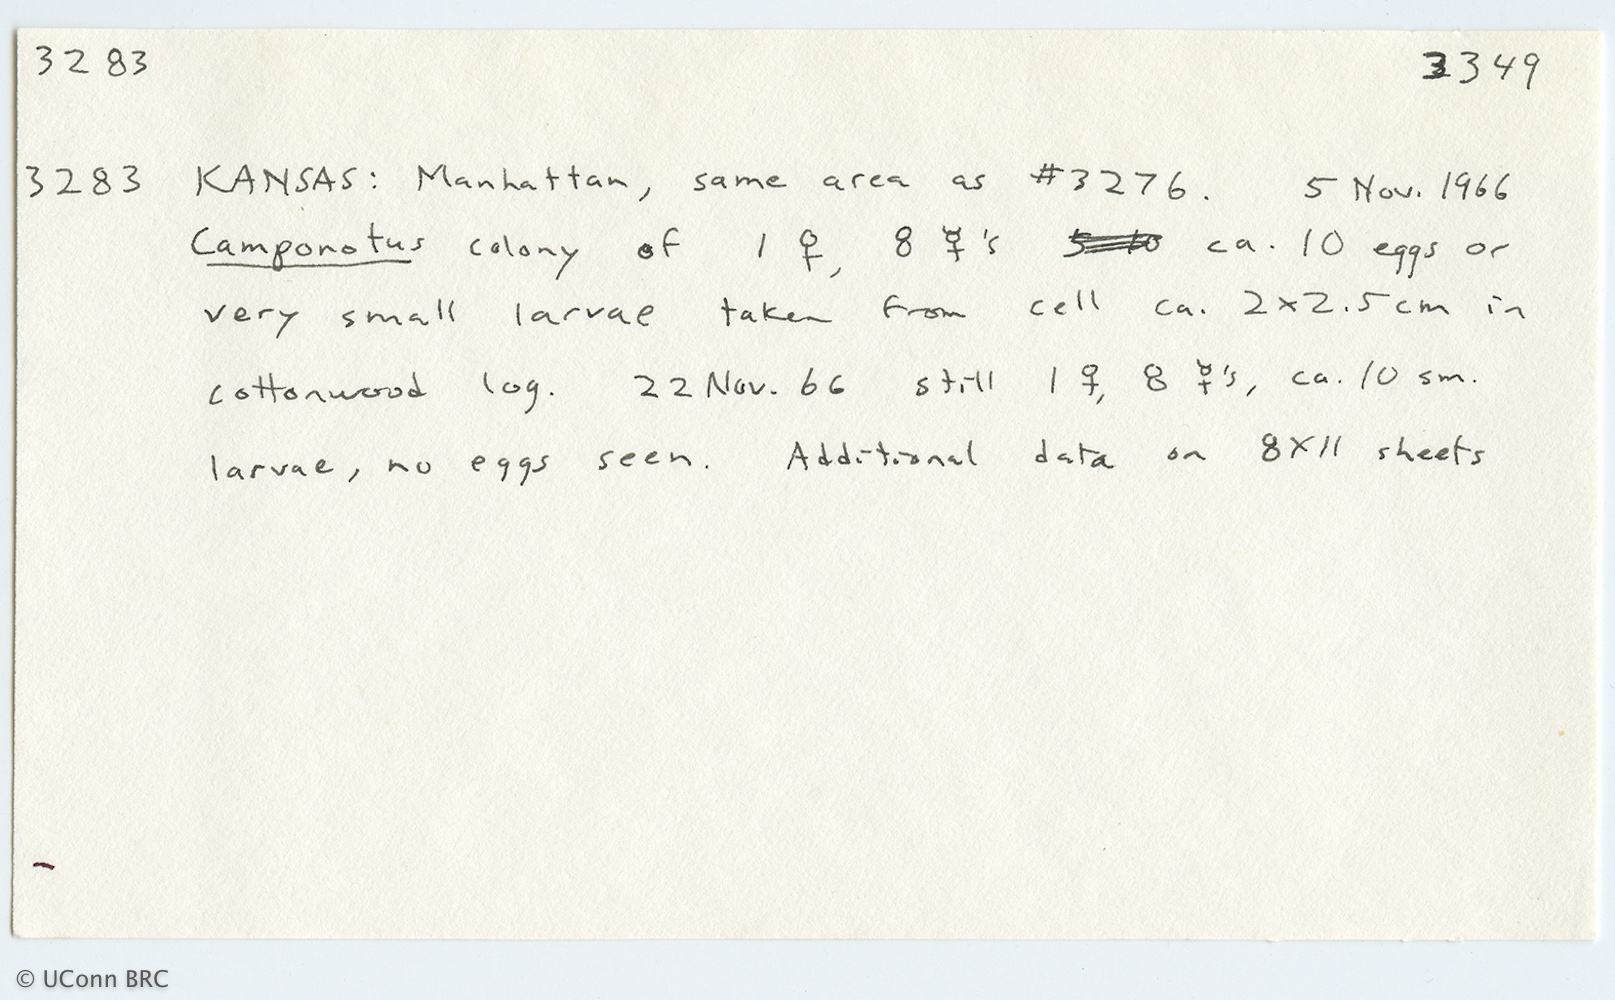 3283 3349
3283 KANSAS: Manhattan, same area as #3276. 5 Nov. 1966
Camponotus colony of 1 ♀, 8 ☿'s ca. 10 eggs or
very small larvae taken from cell ca. 2x2.5cm in
cottonwood log. 22 Nov. 66 still 1 ♀, 8 ☿'s, ca. 10 sm.
larvae, no eggs seen. Additional data on 8X11 sheets
© UConn BRC